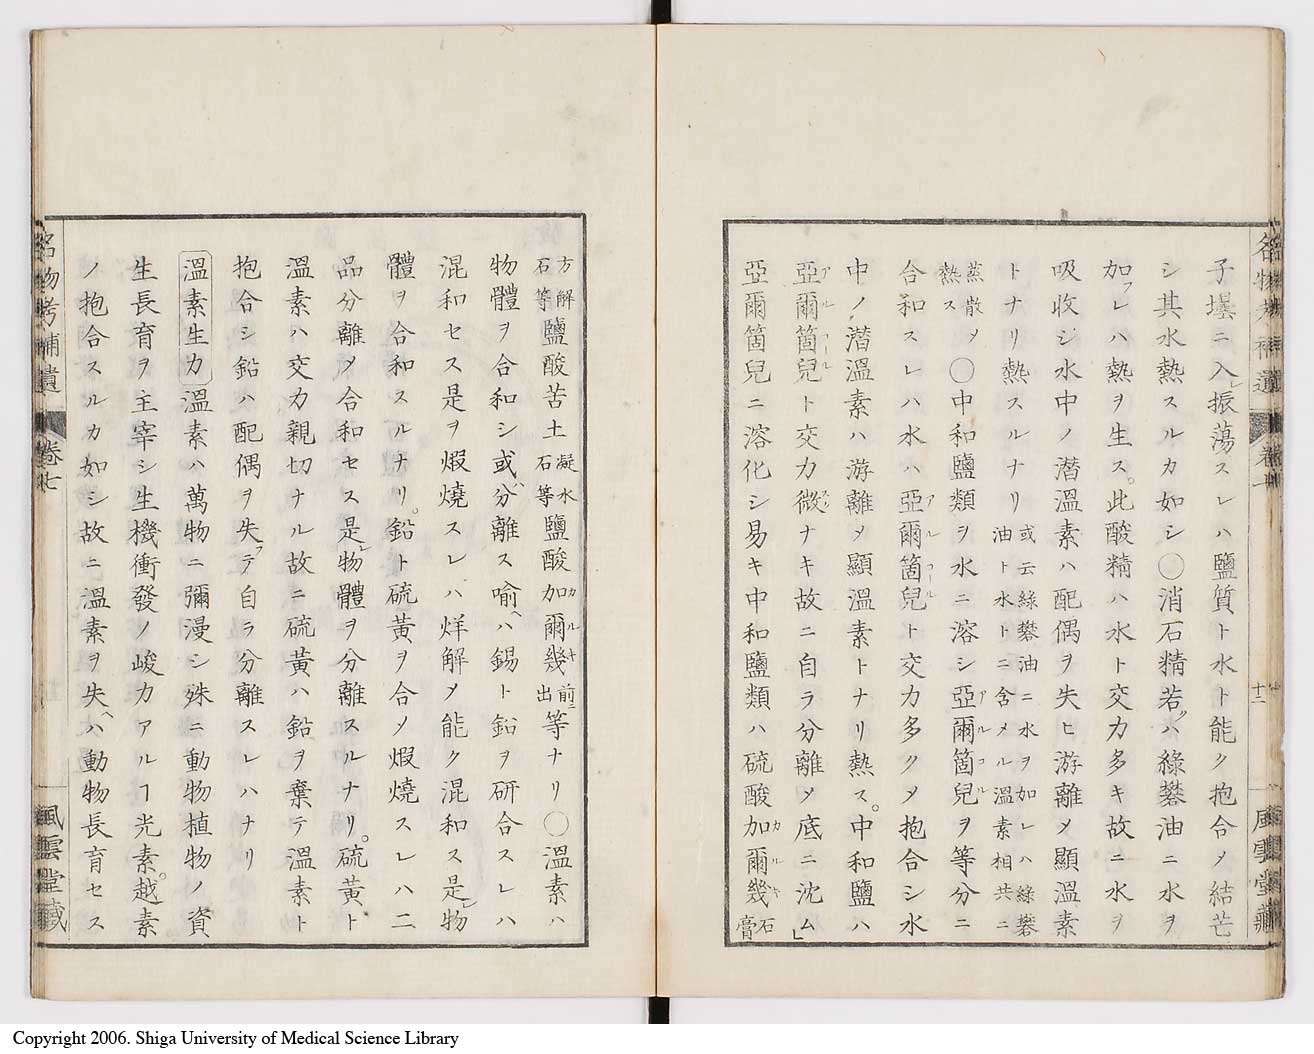 子壜ニ入レ振蕩スレハ鹽質ト水ト能ク抱合メ結芒
シ其水熱スルカ如シ〇消石精若クハ綠礬油ニ水ヲ
加フレハ熱ヲ生ス。此酸精ハ水ト交力多キ故ニ水ヲ
吸收シ水中ノ潜溫素ハ配偶ヲ失ヒ游離メ顯溫素
トナリ熱スルナリ或云綠礬油ニ水ヲ加レハ綠礬油ト水トニ含メル溫素相共ニ
蒸散メ熱ス〇中和鹽類ヲ水ニ溶シ亞爾箇兒ヲ等分ニ
合和スレハ水ハ亞爾箇兒ト交力多クメ抱合シ水
中ノ潜溫素ハ游離メ顯溫素トナリ熱ス。中和鹽ハ
亞爾箇兒ト交力微ナキ故ニ自ラ分離メ底ニ沈ム」
亞爾箇兒ニ溶化シ易キ中和鹽類ハ硫酸加爾幾石膏
名物考補遺 卷七 十二 風雲堂藏
方解石等鹽酸苦土凝水石等鹽酸加爾幾前ニ出等ナリ〇溫素ハ
物體ヲ合和シ或ハ分離ス喩ハ錫ト鉛ヲ研合スレハ
混和セス是ヲ煆燒スレハ烊解メ能ク混和ス是レ物
體ヲ合和スルナリ。鉛ト硫黃ヲ合メ煆燒スレハ二
品分離メ合和セス是レ物體ヲ分離スルナリ。硫黃ト
溫素ハ交力親切ナル故ニ硫黃ハ鉛ヲ棄テ溫素ト
抱合シ鉛ハ配偶ヲ失フテ自ラ分離スレハナリ
溫素生力 溫素ハ萬物ニ彌漫シ殊ニ動物植物ノ資
生長育ヲ主宰シ生機衝發ノ峻力アルヿ光素。越素
ノ抱合スルカ如シ故ニ溫素ヲ失ヘハ動物長育セス
名物考補遺 卷七 風雲堂藏
Copyright 2006. Shiga University of Medical Science Library